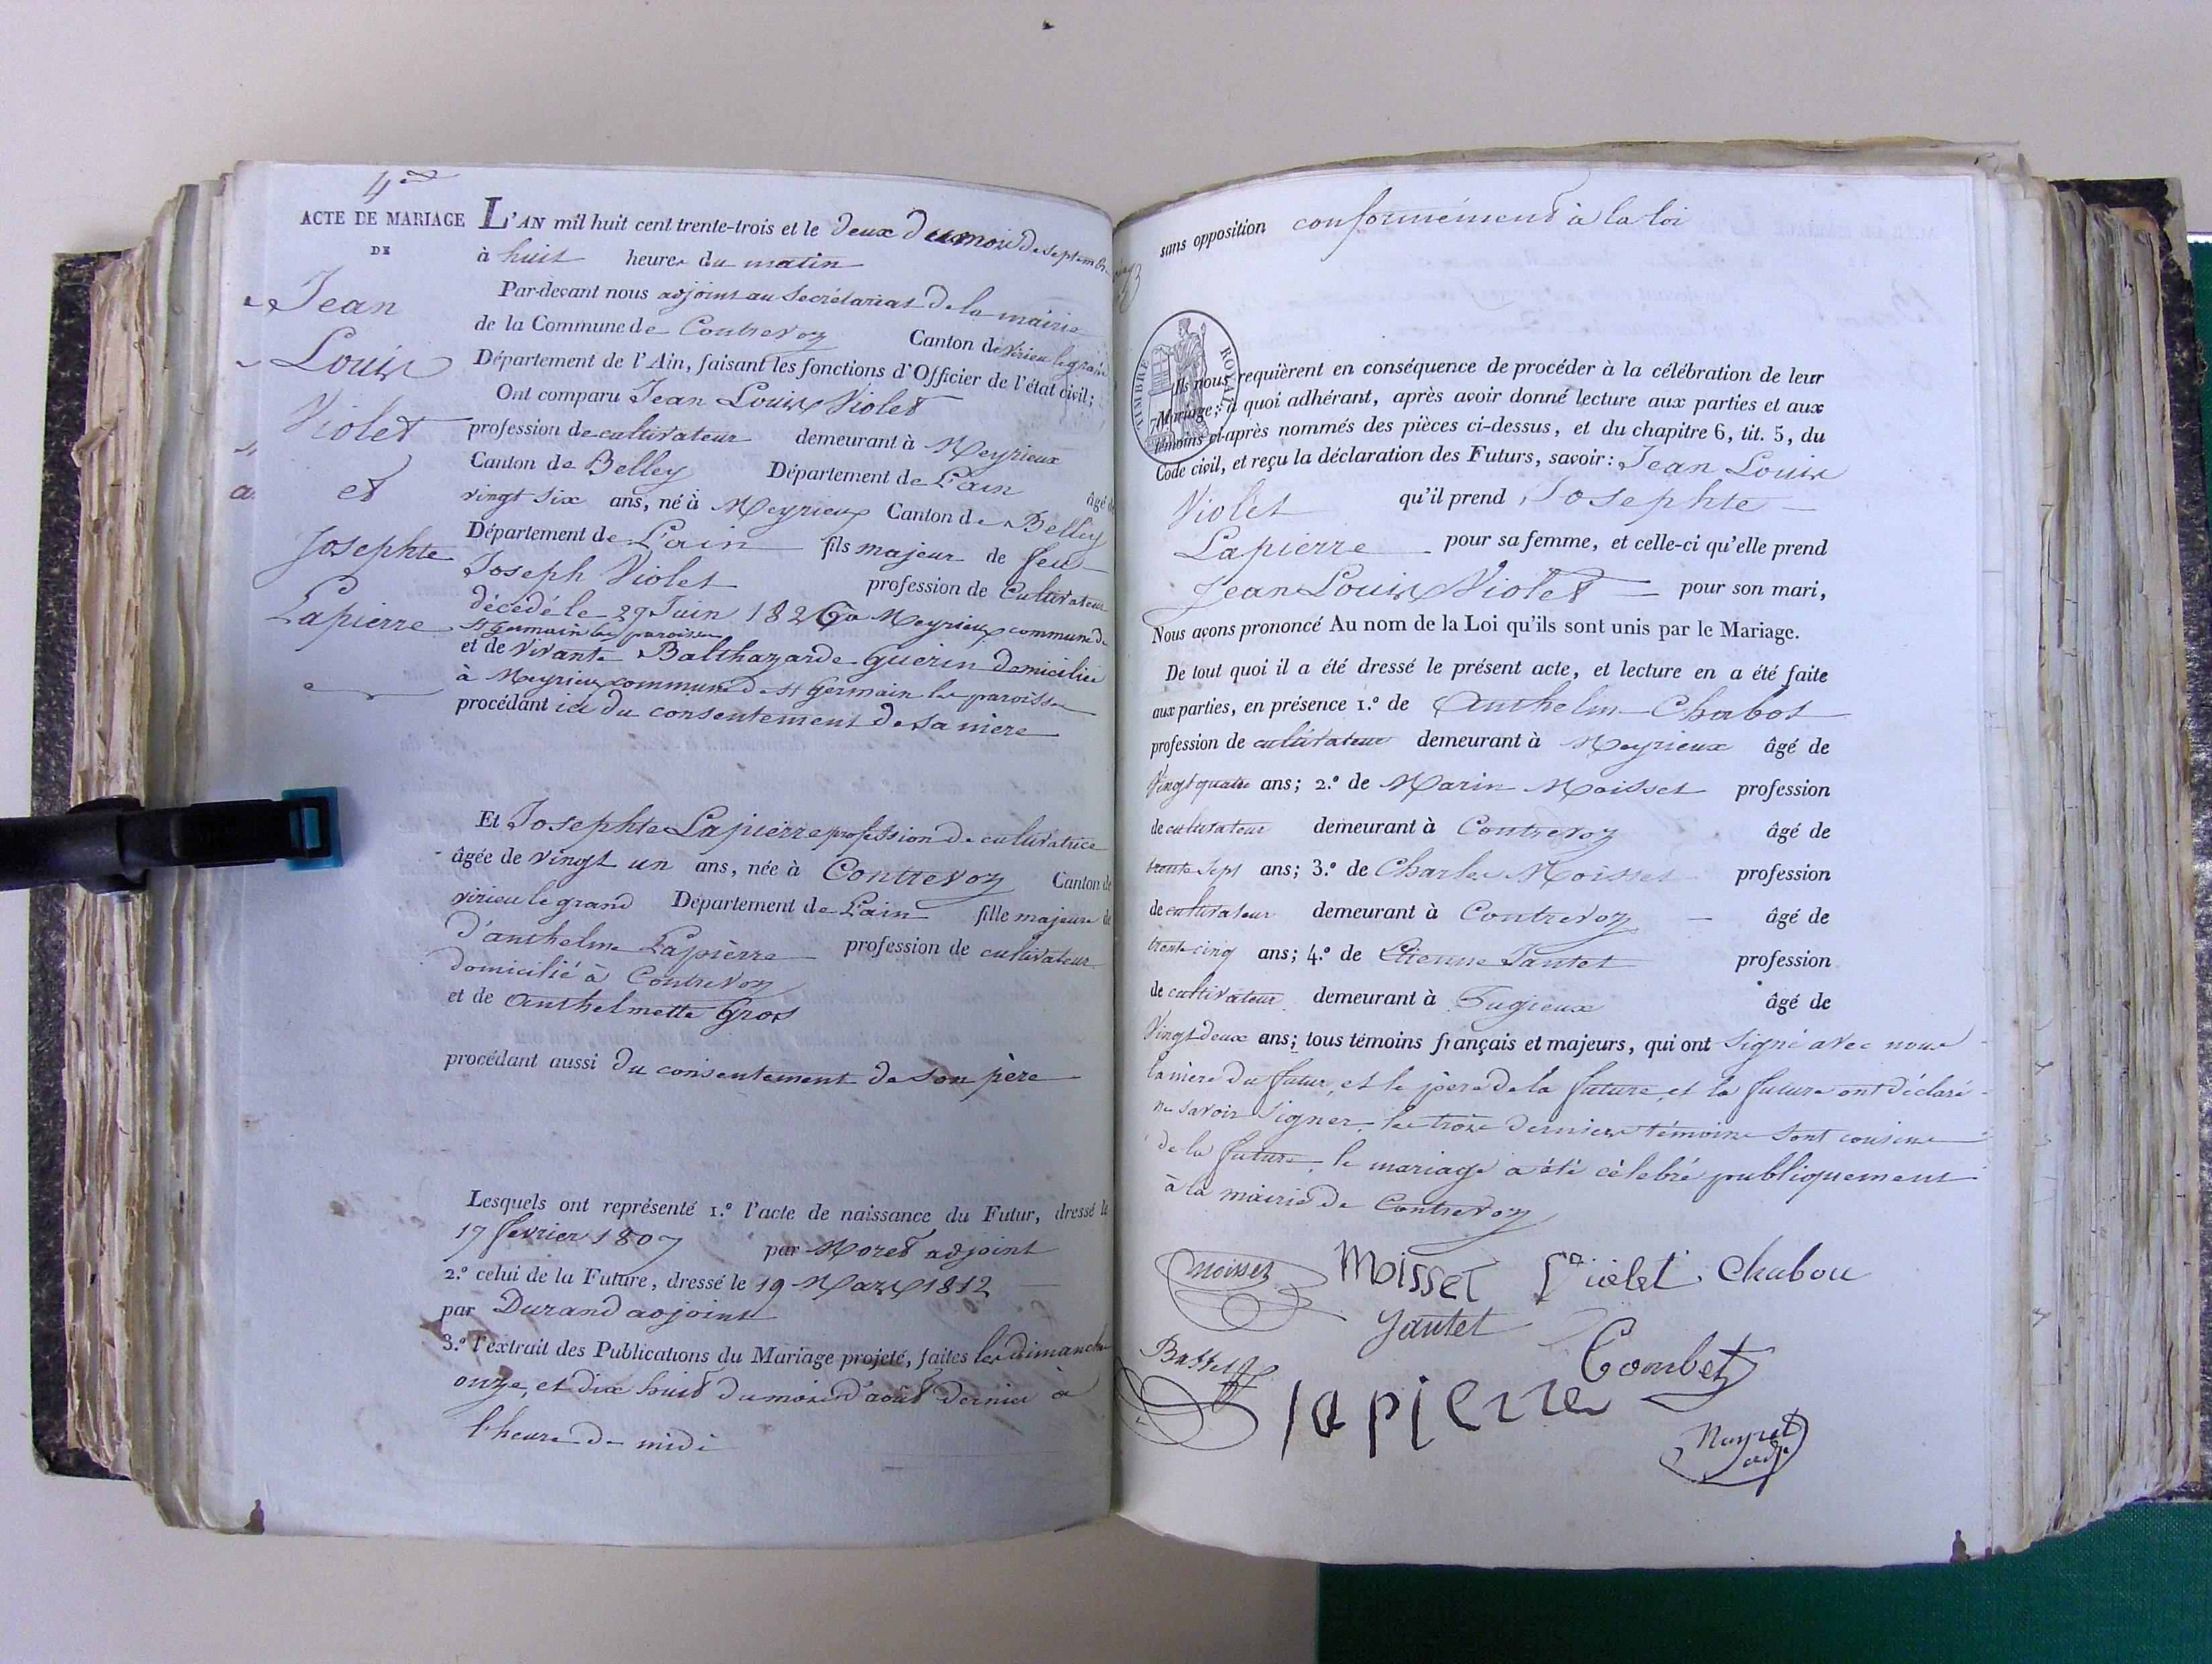 4e
ACTE DE MARIAGE
DE
Jean
Louis
Violet
et
Josephte
Lapierre
L'AN mil huit cent trente-trois et le deux du mois de septembre
à huit heures du matin
Par-devant nous adjoint au secrétariat de la mairie
de la Commune de Contrevoz Canton de Virieu le grand
Département de l'Ain, faisant les fonctions d'Officier de l'état civil;
Ont comparu Jean Louis Violet
profession de cultivateur demeurant à Meyrieux
Canton de Belley Département de L'ain âgé de
vingt six ans, né à Meyrieux Canton de Belley
Département de L'ain fils majeur de feu
Joseph Violet profession de Cultivateur
décédé le 29 Juin 1826 à Meyrieux commune de
St Germain les paroisses
et de vivante Balthazarde Guerin domiciliée
à Meyrieux commune de St Germain les paroisses
procédant ici du consentement de sa mère
Et Josephte Lapierre profession de cultivatrice
âgée de vingt un ans, née à Contrevoz Canton de
virieu le grand Département de L'ain fille majeure de
d'anthelme Lapierre profession de cultivateur
domicilié à Contrevoz
et de Anthelmette Gros
procédant aussi du consentement de son père
Lesquels ont représenté 1.° l'acte de naissance du Futur, dressé le
17 fevrier 1807 par Moret adjoint
2.° celui de la Future, dressé le 19 Mars 1812
par Durand adjoint
3.° l'extrait des Publications du Mariage projeté, faites les dimanches
onze, et dix huit du mois d'août dernier à
l'heure de midi
sans opposition conformément à la loi
TIMBRE ROYAL
Ils nous requièrent en conséquence de procéder à la célébration de leur
Mariage; à quoi adhérant, après avoir donné lecture aux parties et aux
témoins ci-après nommés des pièces ci-dessus, et du chapitre 6, tit. 5, du
Code civil, et reçu la déclaration des Futurs, savoir: Jean Louis
Violet qu'il prend Josephte
Lapierre pour sa femme, et celle-ci qu'elle prend
Jean Louis Violet pour son mari,
Nous avons prononcé Au nom de la Loi qu'ils sont unis par le Mariage.
De tout quoi il a été dressé le présent acte, et lecture en a été faite
aux parties, en présence 1.° de Anthelm Chabot
profession de cultivateur demeurant à Meyrieux âgé de
Vingt quatre ans; 2.° de Marin Moisset profession
de cultivateur demeurant à Contrevoz âgé de
trente sept ans; 3.° de Charles Moisset profession
de cultivateur demeurant à Contrevoz âgé de
trente cinq ans; 4.° de Etienne Jantet profession
de cultivateur demeurant à Pugieux âgé de
Vingt deux ans; tous témoins français et majeurs, qui ont signé avec nous
la mère du futur, et le père de la future et la future ont déclaré
ne savoir signer. les trois derniers témoins sont cousins
de la future. le mariage a été célebré publiquement
à la mairie de Contrevoz
Moisset Moisset Violet Chabou
Jantet
Gonbet
lapierre